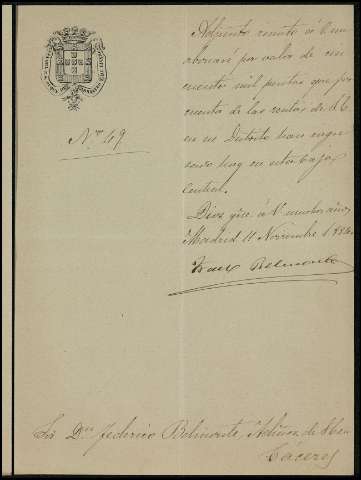 Nº 49
Adjunto remito á V. un
abonaré por valor de cin
cuenta mil pesetas que por
cuenta de las rentas de S. E.
en su Distrito han ingre
sado hoy en esta Caja
Central.
Dios gûe á V. muchos años,
Madrid 11 Noviembre 188
Franco Belmonte
Sor Dn Federico Belmonte, Admor de S. E. en
Cáceres